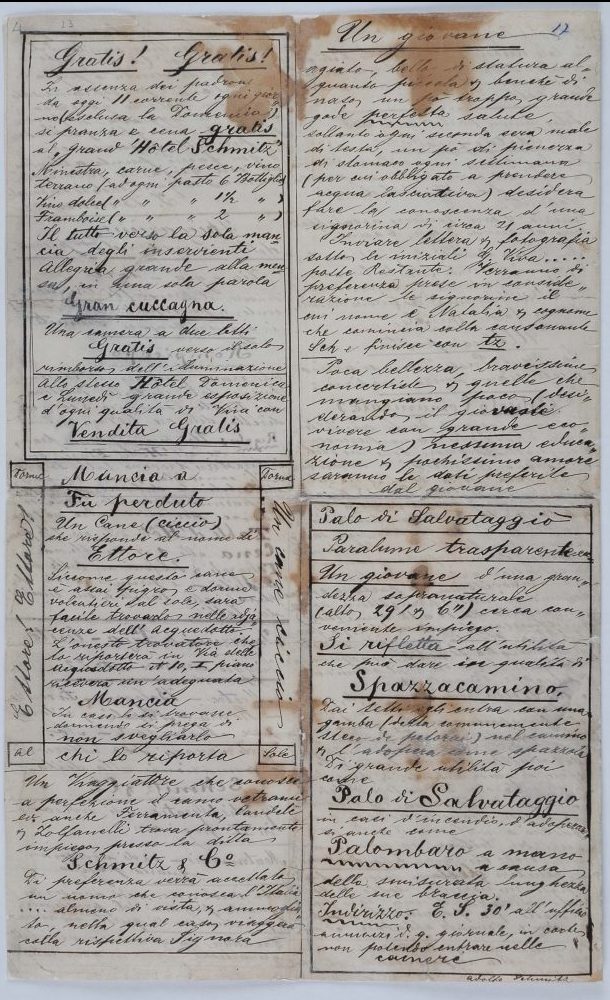 Gratis! Gratis!
In assenza dei padroni
da oggi 11 corrente ogni gior-
no (esclusa la Domenica)
si pranza e cena gratis
al "grand Hôtel Schmitz"
Minestra, carne, pesce, vino
terrano (ad ogni patto 6 Bottiglie)
Vino dolce ( " " " 1½ " )
Framboise ( " " " 2 " )
Il tutto verso la sola man-
cia degli inservienti
Allegria grande alla men-
sa, in una sola parola
Gran cuccagna.
Una camera a due letti
Gratis verso il solo
rimborso dell'illuminazione
Allo stesso Hôtel Domenica
e Lunedì grande esposizione
d'ogni qualità di Vini con
Vendita Gratis
Torna
Mancia a
Torna
Fu perduto
Un Cane (ciccio)
che risponde al nome di
Ettore.
Siccome questo cane
è assai pigro, e dorme
volentieri sul sole, sarà
facile trovarlo nelle adja-
cenze dell'acquedotto.
L'onesto trovatore che
lo riporterà in Via dello
Acquedotto No 10, I piano
riceverà un'adeguata
Mancia
In caso lo si trovasse
dormendo si prega di
non svegliarlo
Ettore! Ettore!
Un cane ciccio
al
chi lo riporta
Sole
Un Viaggiatore che conosce
a perfezione il ramo vetrami
ed anche Ferramenta, Candele
& Zolfanelli trova prontamente
impiego presso la ditta
Schmitz & Co
Di preferenza verrà accettato
un uomo che conosca l'Italia
.... almeno di vista, & ammoglia-
to, nella qual caso viaggerà
colla rispettiva Signora
17
Un giovane
agiato, bello, di statura al-
quanto piccola & benchè di
naso un pò troppo grande
gode perfetta salute,
soltanto ogni seconda sera male
di testa, un pò di pienezza
di stomaco ogni settimana
(per cui obbligato a prendere
acqua lassativa) desidera
fare la conoscenza d'una
signorina di circa 21 anni.
Inviare lettera & fotografia
sotto le iniziali " Viva .....
poste Restante. Verranno di
preferenza prese in conside-
razione le signorine il
cui nome è Natalia & cognome
che comincia colla consonante
Sch e finisce con tz.
Poca bellezza, bravissime
concertiste & quelle che
mangiano poco (desi-
derando il giovane
vivere con grande eco-
nomia) nessuna educa-
zione & pochissimo amore
saranno le doti preferite
dal giovane
Palo di Salvataggio
Paralume trasparente ecc.
Un giovane d'una gran-
dezza sopranaturale
(alto 29' & 6") cerca con-
veniente impiego.
Si rifletta all'utilità
che può dare in qualità di
Spazzacamino.
Dai tetti egli entra con una
gamba (detta comunemente
nel camino
& l'adopera come spazzola
Di grande utilità poi
come
Palo di Salvataggio
in casi d'incendio, s'adopera
si anche come
Palombaro a mano
a causa
della smisurata lunghezza
delle sue braccia.
Indirizzo: E. S. 30' all'uffizio
annunzi d. q. giornale, in corte
non potendo entrare nelle
camere
Adolfo Schmitz